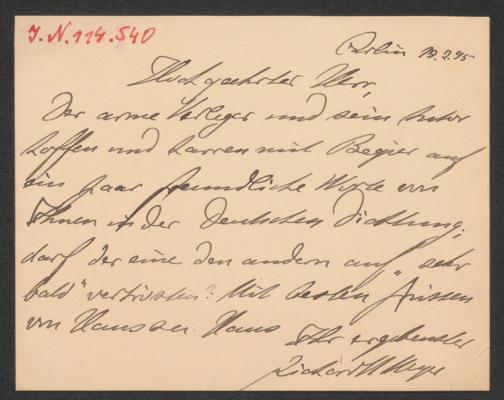 I.N.114.540
Berlin 19.2.95
Hochgeehrter Herr,
Der arme Verleger und sein Autor
hoffen und harren mit Begier auf
ein paar freundliche Worte von
Ihnen in der Deutschen Dichtung;
darf der eine den andern auf „sehr
bald" vertrösten? Mit besten Grüssen
von Haus zu Haus
Ihr ergebenster
Richard M Meyer